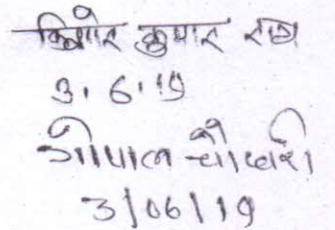 किशोर कुमार राम
3.6.19
गोपाल चौधरी
3/06/19